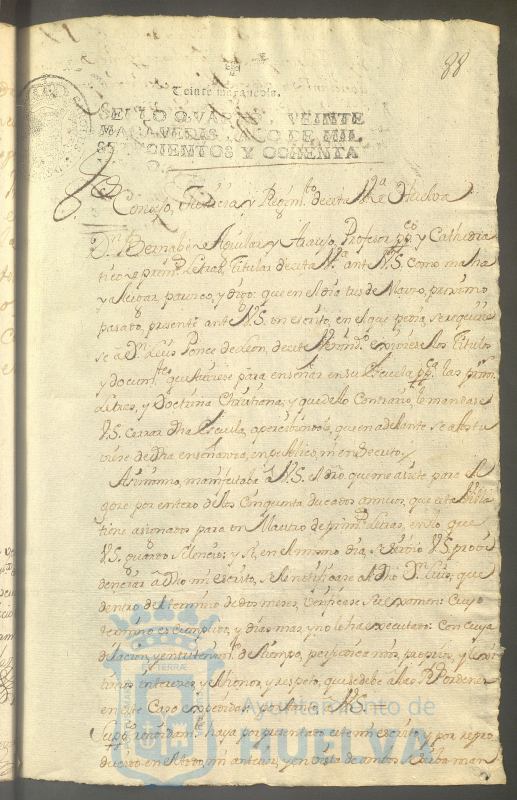 88
Veinte maravedis.
SELLO QVARTO, VEINTE
MARAVEDIS, AÑO DE MIL
SETECIENTOS Y OCHENTA
Concejo, Justicia y Regim.to de esta V.a de Huelva
D.n Bernabe de Aguilar y Araujo, Profesor pp.co y Cathedra
tico de prim.s Letras, Titular de esta V.a ante V.S. como mas ha
ya lugar parezco, y digo: que en el dia tres de Marzo, proximo
pasado, presenté ante V.S. un escrito, en el que pedia, se requirie
se á D.n Luis Ponce de Leon, de este Vecind.o exiviese los Titulos
y docum.tos que tuviese para enseñar en su Escuela pp.ca las prim.s
Letras, y Doctrina Christiana, y que de lo Contrario le mandase
V.S. cerrar dha Escuela, apercibiendole, que en adelante se abstu
viese de dha enseñanza, en publico, ni en Secreto, y
Asimismo, manifestaba á V.S. el dro que me asiste para el
goze por entero de los Cinquenta ducados anuos, que esta Villa
tiene asignados para un Maestro de prim.s Letras, en lo que
V.S. guardó silencio; y si, en el mismo dia, se sirvió V.S. provi
denciar á dho mi Escrito, se le notificase al dho D.n Luis, que
dentro del termino de dos meses, verificase su examen: Cuyo
termino es cumplido, y dias mas, y no lo ha executado: Con cuya
dilacion, y entretenim.to de tiempo, perjudica mis
intereses, y el honor, y respeto, que se debe a las R.s Ordenes
en este Caso expedidas: por tanto A V.S. =
Sup.co rendidam.te haya por presentado este mi escrito, y por repro
ducido en el mi anterior, y en vista de ambos se sirva man
Ayuntamiento de
HUELVA